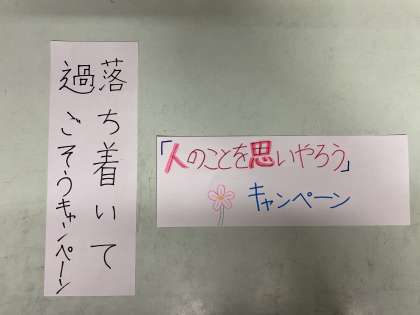 落ち着いて
過ごそうキャンペーン
「人のことを思いやろう」
キャンペーン